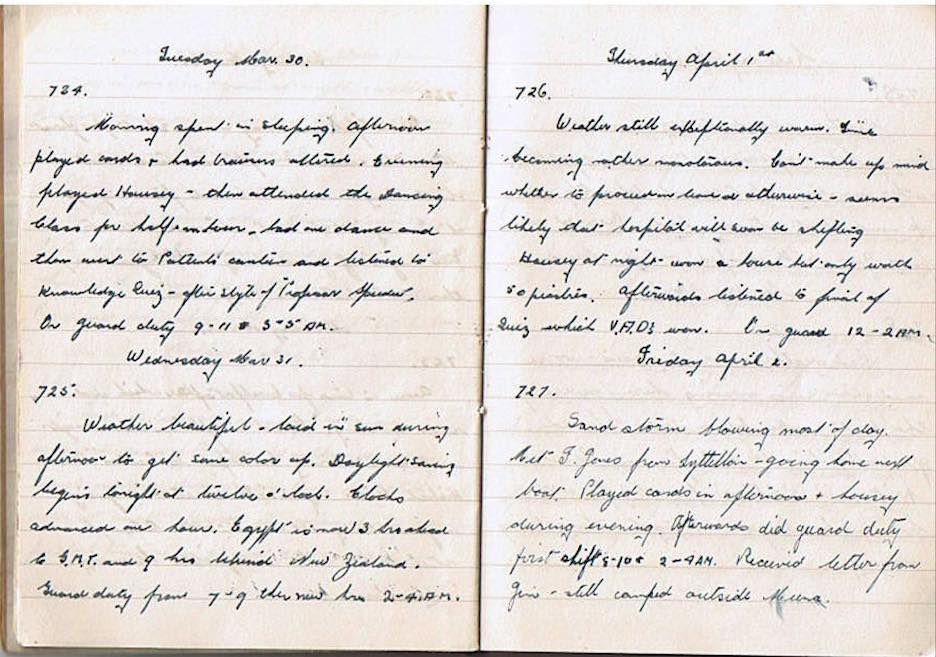 Tuesday Mar. 30.
724.
Morning spent in sleeping. Afternoon
played cards & had trousers altered. Evening
played Housey - then attended the Dancing
Class for half an hour - had one dance and
then went to Patients canteen and listened to
Knowledge Quiz - after style of Professor
On guard duty 9-11 & 3-5 AM.
Wednesday Mar 31.
725.
Weather beautiful - laid in sun during
afternoon to get some color up. Daylight saving
begins tonight at twelve o'clock. Clocks
advanced one hour. Egypt is now 3 hrs ahead
to G.M.T. and 9 hrs behind New Zealand.
Guard duty from 7-9 then new hrs 2-4 AM.
Thursday April 1st
726.
Weather still exceptionally warm. Time
becoming rather monotonous. Can't make up mind
whether to proceed on leave or otherwise - seems
likely that hospital will soon be shifting
Housey at night won a house but only worth
50 piastres. Afterwards listened to final of
Quiz which V.A.Ds won. On guard 12-2 AM.
Friday April 2.
727.
Sand storm blowing most of day.
Met F. Jones from Lyttelton - going home next
boat. Played cards in afternoon & housey
during evening. Afterwards did guard duty
first shift 8-10 & 2-4 AM. Received letter from
Jim - still camped outside